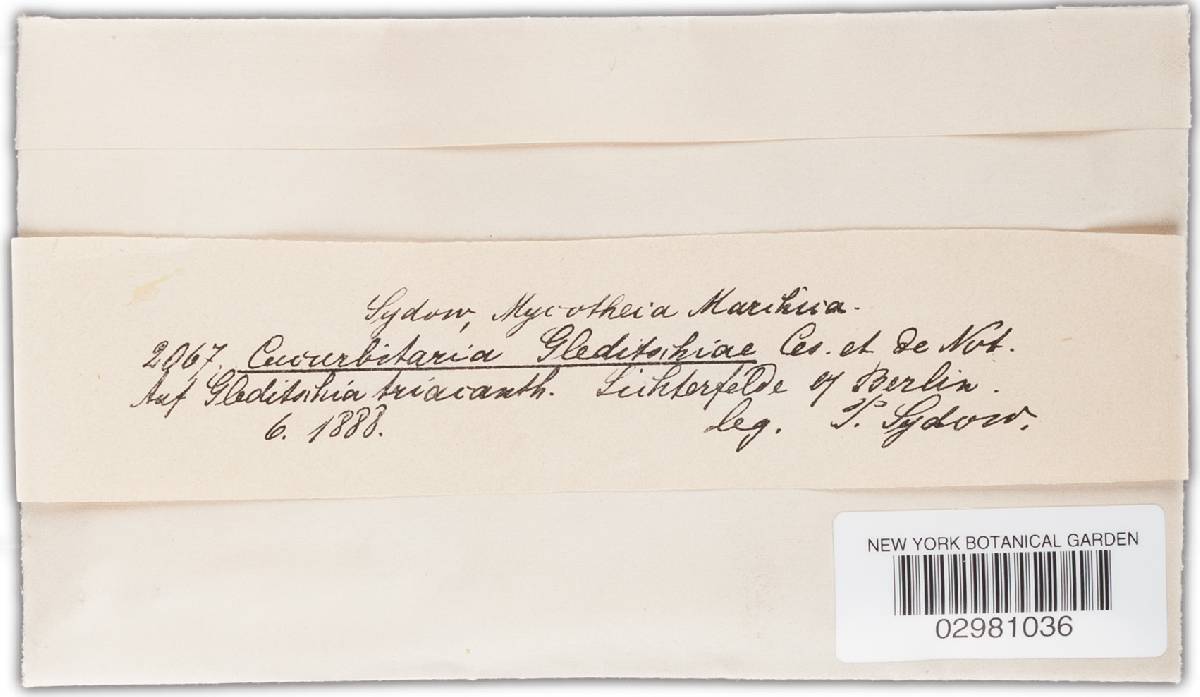 Sydow, Mycotheca Marchica.
2067. Cucurbitaria Gleditschiae Ces. et de Not.
Auf Gleditschia triacanth. Lichterfelde b/ Berlin.
6. 1888. leg. P. Sydow.
NEW YORK BOTANICAL GARDEN
02981036